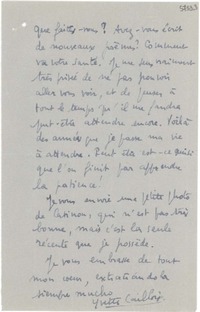 58333
que faites-vous? Avez-vous écrit
de nouveaux poèmes? Comment
va votre santé? Je me sens vraiment
très privée de ne pas pouvoir
aller vous voir, et de penser à
tout le temps qu'il me faudra
peut-être attendre encore. Voilà
des années que je passe ma vie
à attendre. Peut-être est-ce ainsi
que l'on finit par apprendre
la patience!
Je vous envoie une petite photo
de Catinou, qui n'est pas très
bonne, mais c'est la seule
récente que je possède.
Je vous embrasse de tout
mon coeur,
siempre mucho
Yvette Caillois